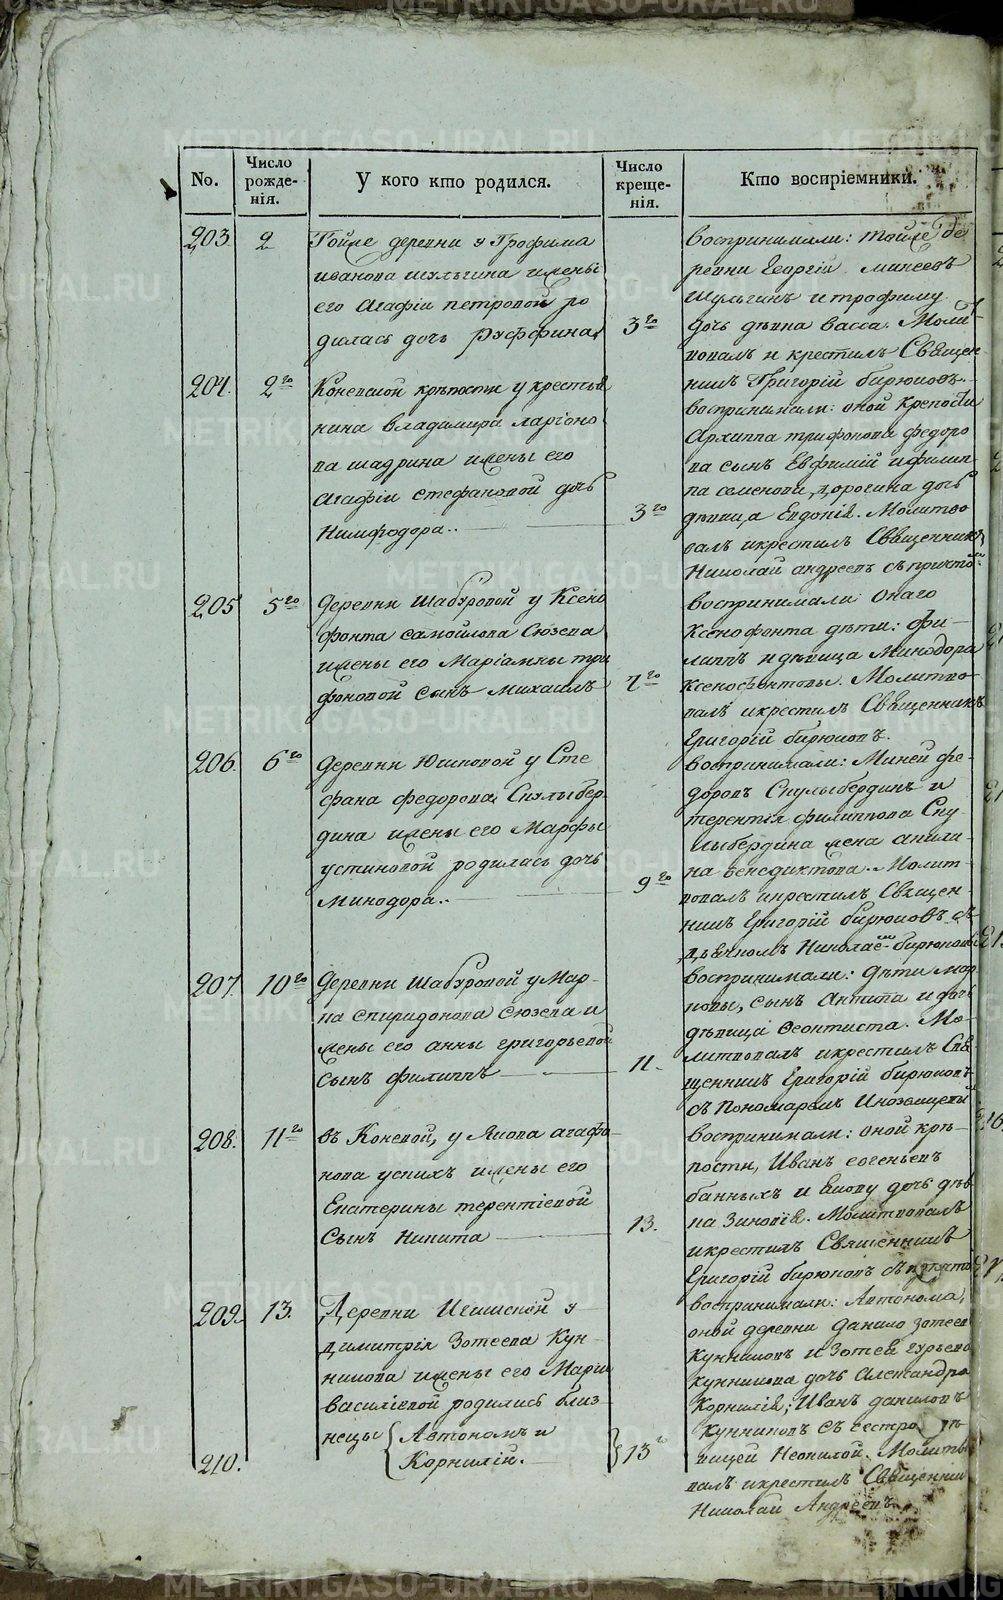 No.
Число рожде-нія.
У кого кто родился.
Число креще-нія.
Кто воспріемники.
203.
2
Тойже деревни у Трофима
иванова шульгина ижены
его Агафіи петровой ро
дилась дочь Руффина
3го
воспринимали: тойже де
ревни Георгій Минеевъ
Шульгинъ и трофиму
дочь дѣвка васса. Моли
вовалъ и крестилъ Священ-
никъ Григорій бирюковъ.
204.
2го
Коневской крѣпости у крестья
нина владимира ларіоно
ва шадрина ижены его
Агафіи стефановой дочь
Нимфодора..
3го
воспринимали: оной крепости
Архиппа трифонова федоро
ва сынъ Евфимій ифилип
па семенова дорогина дочь
дѣвица Евдокія. Молитво
валъ икрестилъ Священникъ
Николай андреевъ съ причто
205
5го
деревни Шабуровой у Ксено
фонта самойлова Сюзева
ижены его Маріамны три
фоновой сынъ михаилъ
7го
воспринимали онаго
Ксенофонта дѣти: фи-
липпъ идѣвица Минодора
Ксенофонтовы. Молитво-
валъ икрестилъ Священникъ
Григорій бирюковъ.
206.
6го
деревни Юшковой у Сте
фана федорова Скулыбер-
дина ижены его Марфы
устиновой родилась дочь
минодора..
9го
воспринимали: Миней фе-
доровъ Скулыбердинъ и
терентія филиппова Ску
лыбердина жена акили-
на венедиктова.. Молит-
вовалъ икрестилъ Священ-
никъ Григорій бирюковъ съ
дьячкомъ Николаемъ бирюковы
207.
10го
деревни Шабуровой у Мар-
ка спиридонова сюзева и
жены его анны григорьевой
Сынъ филиппъ
11.
воспринимали: дѣти мар
ковы, сынъ Антипа и дочь
дѣвица Феоктиста. Мо-
литвовалъ икрестилъ Свя-
щенникъ Григорій бирюковъ
съ Пономаремъ Инозамцевы
208.
11го
въ Коневой, у Якова агафо-
нова успихъ ижены его
Екатерины терентіевой
Сынъ Никита
13.
воспринимали: оной крѣ-
пости, Иванъ евгеньевъ
банныхъ и Якову дочь дѣв
ка Зиновія. Молитвовалъ
икрестилъ Священникъ
Григорій бирюковъ съ причто
209.
13.
Деревни Игишской у
димитрія Зотеева Кун-
никова ижены его Маріи
василіевой родились близ-
нецы
Автономъ и
210.
Корнилій.
13
воспринимали: Автонома,
оной деревни данило зотеев
Кунниковъ и Зотея гурьева
кунникова дочь Александра
Корнилія; Иванъ даниловъ
Кунниковъ съ сестро дѣ-
вицей Неонилой. Молитво
валъ икрестилъ Священни
Николай Андреевъ
METRIKI.GASO-URAL.RU